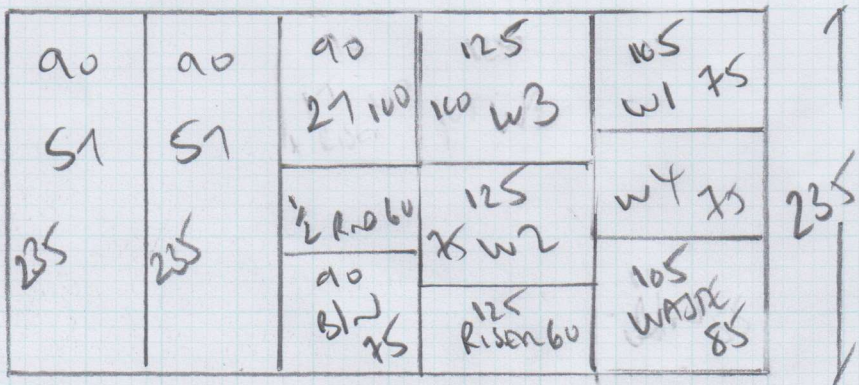 90
51
235
90
51
235
90
21 100
1/2 RISER 60
90
BIN
75
125
100 W3
125
75 W2
125
RISER 60
105
W1 75
W4 75
105
WASTE
85
235